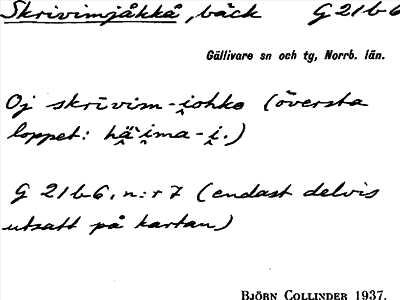 Skrivimjåkkå, bäck G 21 b 6
Gällivare sn och tg, Norrb. län.
Oj skrīvim-i̯ohkɵ (översta
loppet: hä̭i̭ma-i̭.)
G 21 b 6, n:r 7 (endast delvis
utsatt på kartan)
BJÖRN COLLINDER 1937.